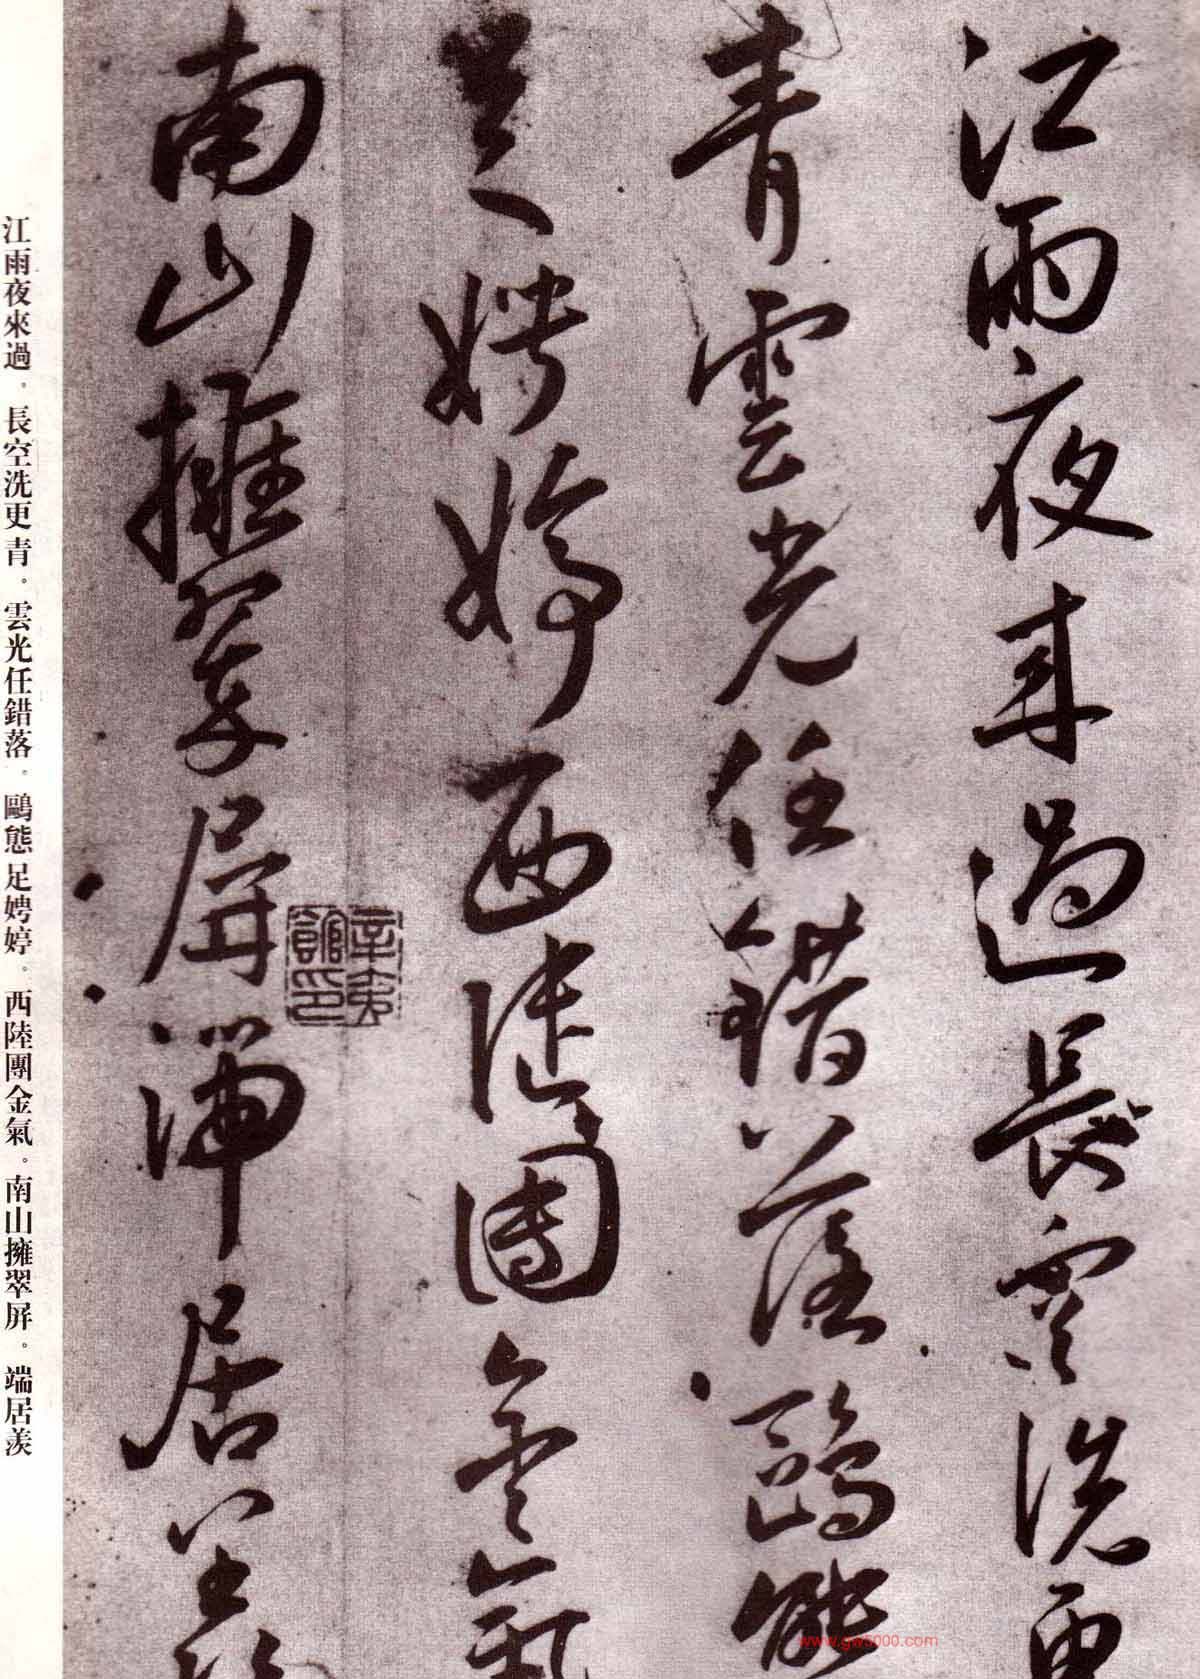 江雨夜來過長空洗更
青雲光任錯落鷗態
足娉婷西陸團金氣
南山擁翠屏端居羡
江雨夜來過。長空洗更青。雲光任錯落。鷗態足娉婷。西陸團金氣。南山擁翠屏。端居羡
www.gw5000.com